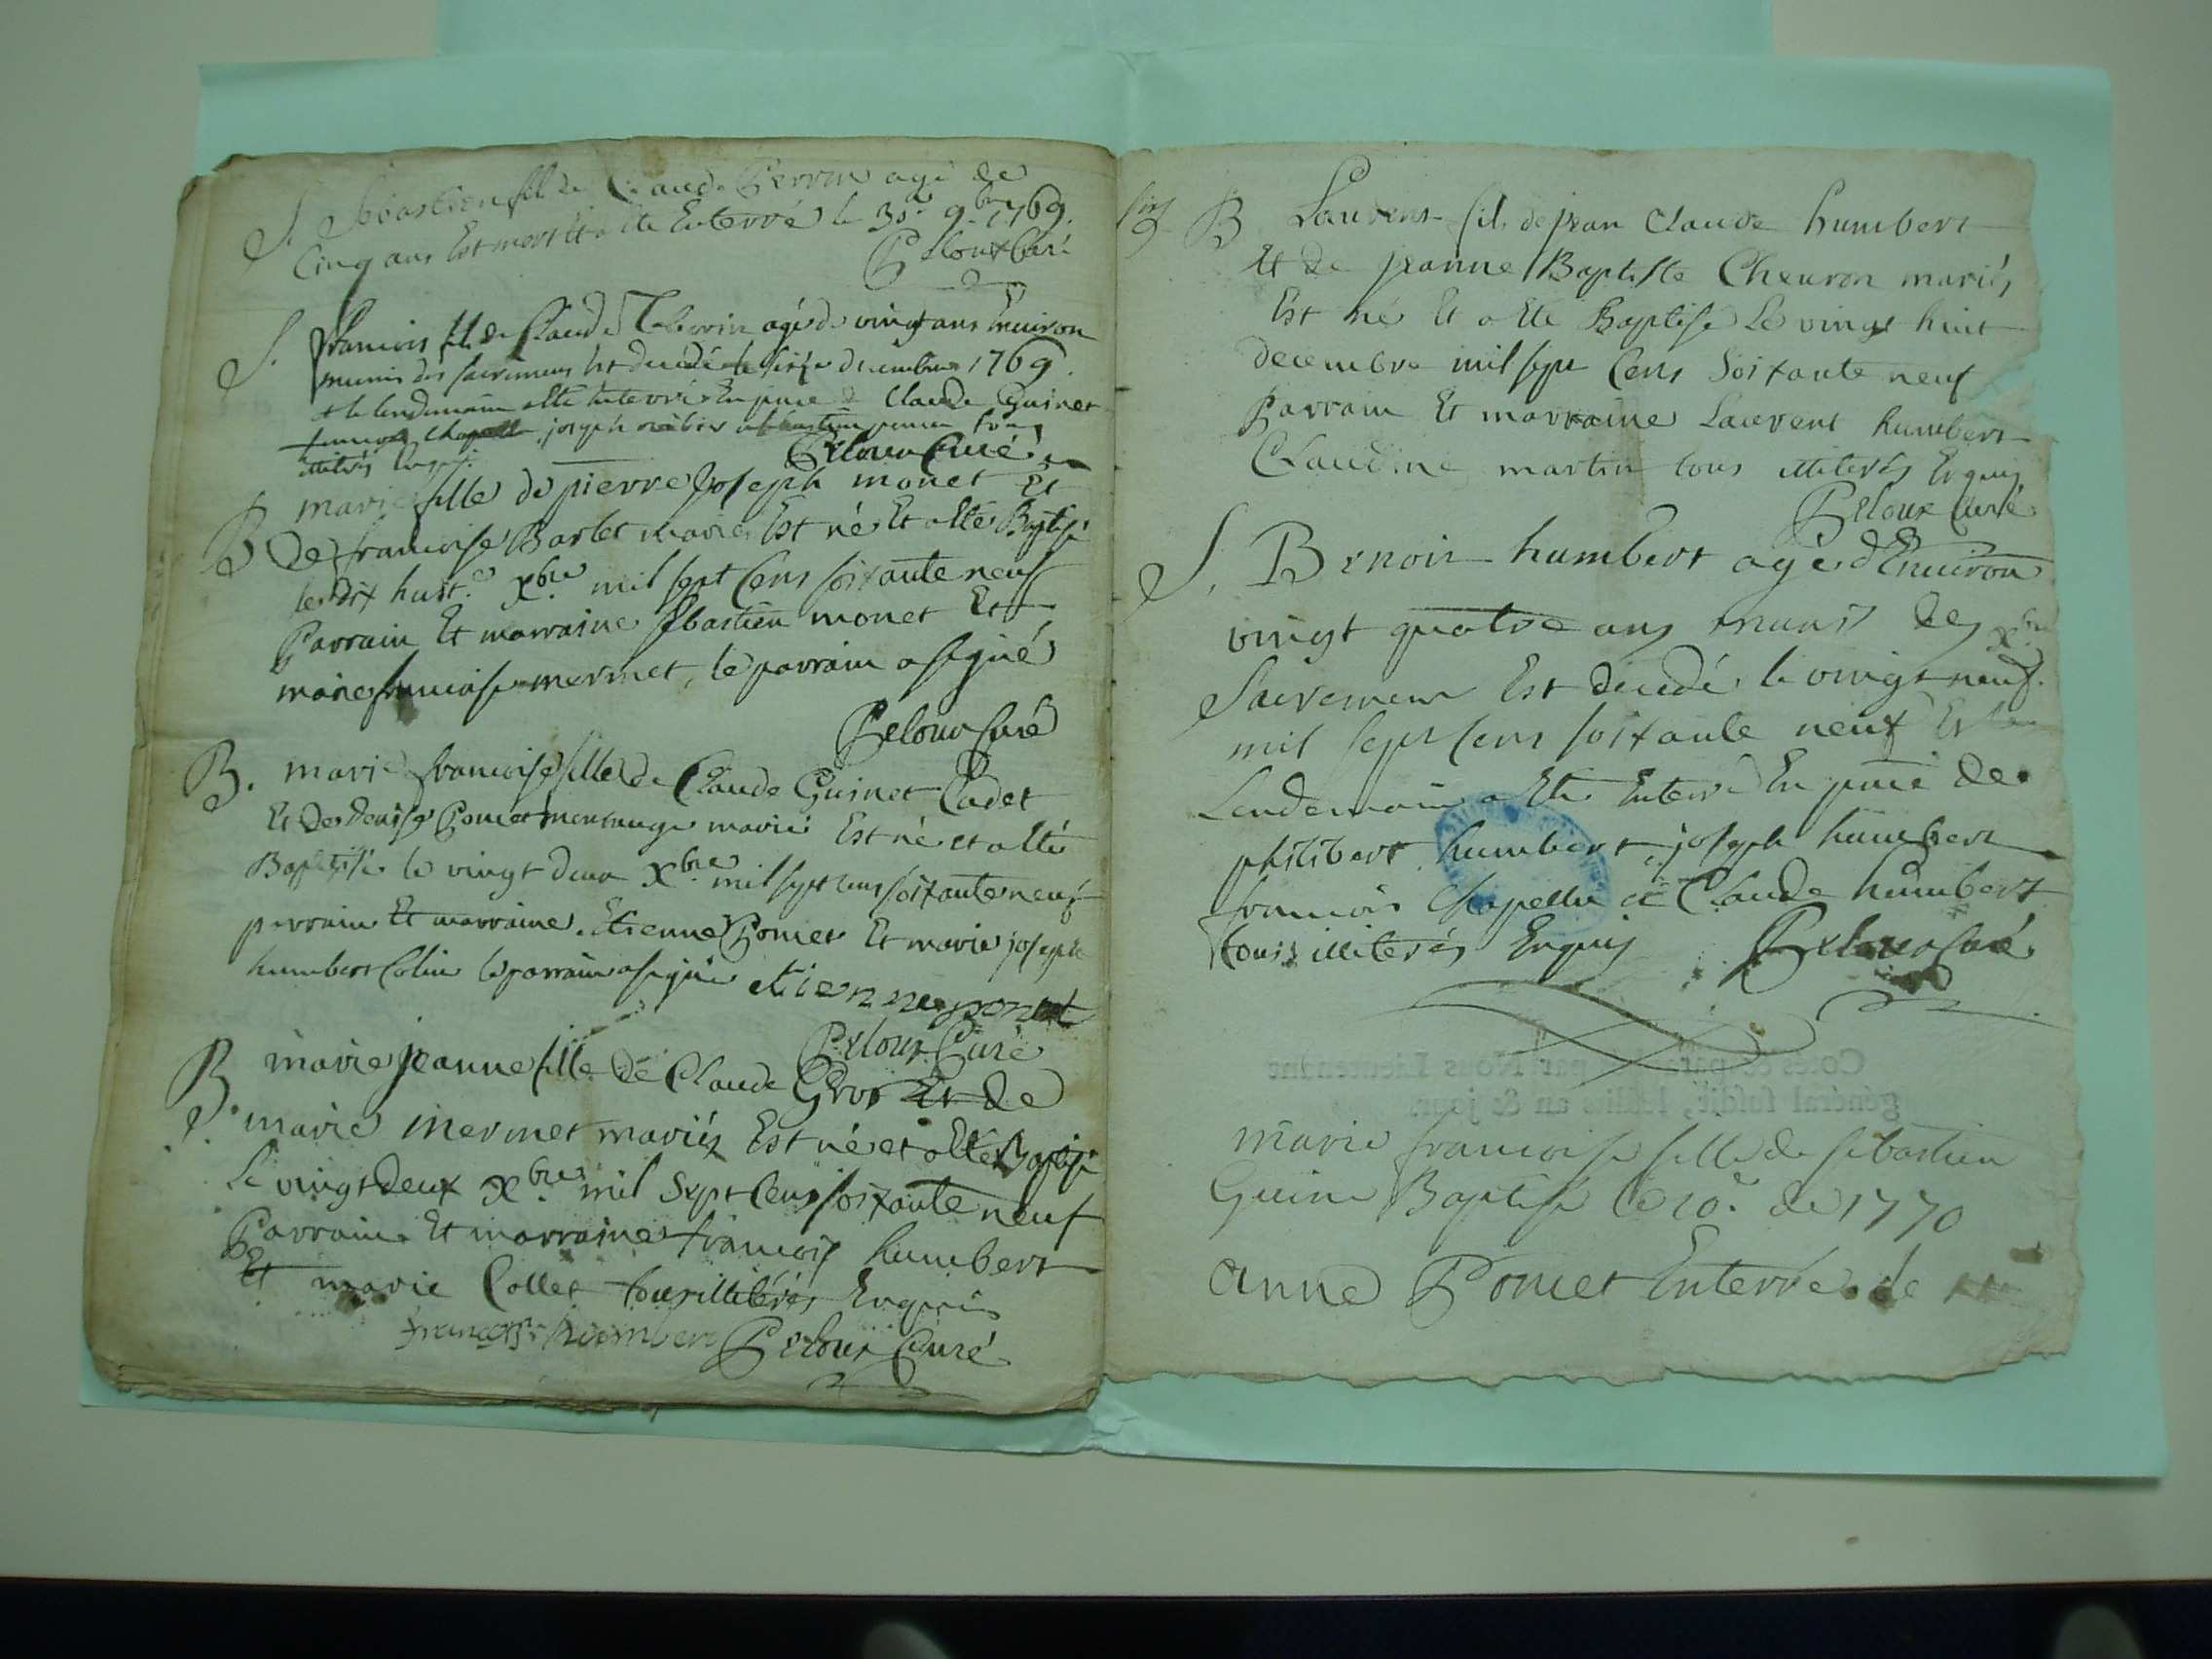 S. Sebastien fil de Claude Perrin agé de
Cinq ans Est mort Et a ete Enterré le 30e 9bre 1769.
Peloux Curé
S. francois fil de Claude agé de vingt ans Enuiron
munis des sacremens Est decedé le seize decembre 1769.
et le lendemain a ete Enterré En pnce de Claude Guinet
francois Chapelle, joseph
illiterés Enquis.
Peloux Curé
B marie fille de pierre joseph monet Et
De francoise Barlet mariés Est né Et a ete Baptisé
le dix huit.e Xbre mil sept Cens soixante neuf
Parrain Et marraine sebastien monet Et
marie francoise mermet, le parrain a signé
Peloux Curé
B. marie francoise fille de Claude Guinet Cadet
Et De Denise Poncet mariés Est né et a ete
Baptisée le vingt deux Xbre mil sept cens soixante neuf
parrain Et marraine. Etienne Poncet Et marie joseph
humbert Colin le parrain a signé etienne ponct
Peloux Curé
B. marie jeanne fille de Claude Gros Et de
marie mermet mariés Est né et a ete Baptisé
Le vingt deux Xbre mil Sept Cens soixante neuf
Parrain Et marraine francois humbert
Et marie Collet tous illiterés Enquis
francois humbert Peloux Curé
B Laurens fil de jean Claude humbert
Et de jeanne Baptiste Cheuron mariés
Est né Et a ete Baptisé Le vingt huit
decembre mil sept Cens Soixante neuf
Parrain Et marraine Laurent humbert
Claudine martin tous illiterés Enquis
Peloux Curé
S. Benoit humbert agé d'Enuiron
vingt quatre ans munis des
Sacremens Est decedé le vingt neuf Xbre
mil sept Cens soixante neuf Et le
Lendemain a Ete Enterré En pnce de
philibert humbert, joseph humbert
francois Chapelle et Claude humbert
tous illiterés Enquis Peloux Curé
Cotés & par Nous Lieutenant
général susdit, lesdits an & jour.
marie francoise fille de sebastien
Guine Baptisé le 10e de 1770
anne Poncet Enterré. de